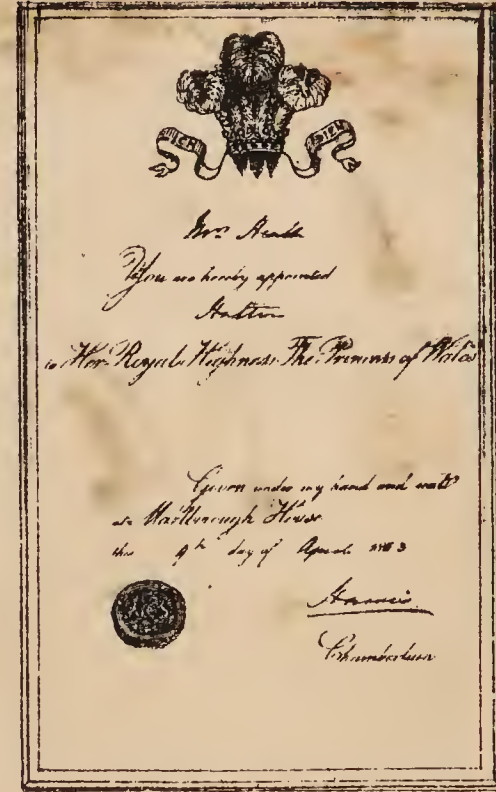 Mrs. Heath
You are hereby appointed
Hatter
to Her Royal Highness The Princess of Wales
Given under my hand and seal
at Marlborough House
this 9th day of April
Chamberlain